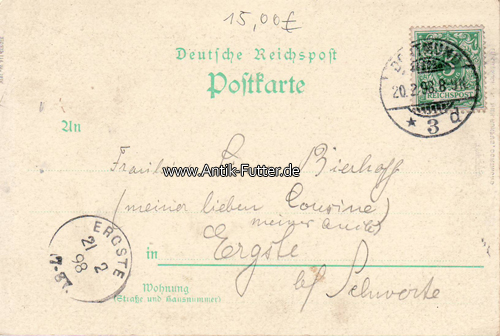 15,00€
Deutsche Reichspost
Postkarte
DORTMUND
20.2.98.8-9N.
* 3 d.
REICHSPOST
An
Fräulein Bierhoff
www.Antik-Futter.de
(meiner lieben Cousine)
meiner
ERGSTE
21 2
98
7-8V.
in Ergste
bei Schwerte
Wohnung
(Straße und Hausnummer)